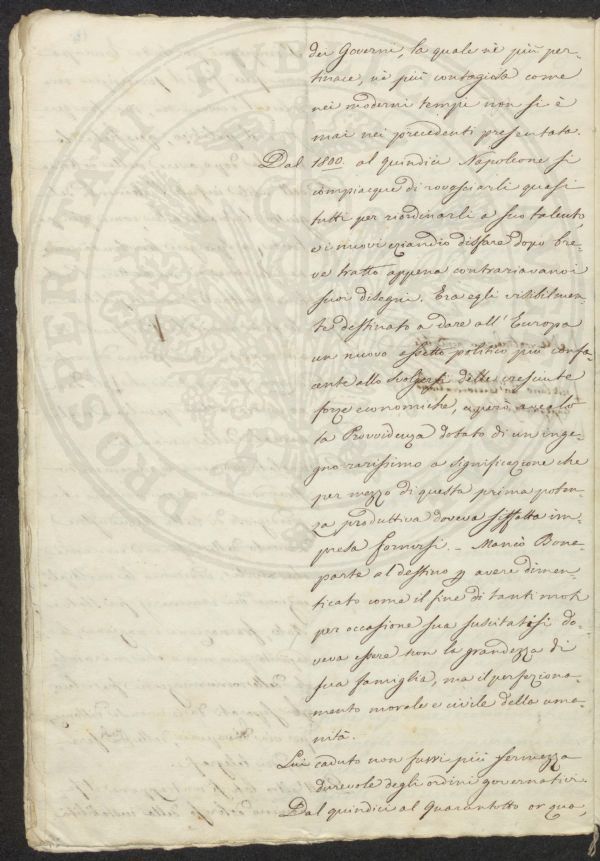 dei Governi, la quale nè più per-
tinace, nè più contagiosa come
nei moderni tempi non si è
mai nei precedenti presentata.
Dal 1800 al quindici Napoleone si
compiacque di rovesciarli quasi
tutti per riordinarli a suo talento,
e i nuovi eziandio disfare dopo bre-
ve tratto appena contrariavano i
suoi disegni. Era egli visibilmen-
te destinato a dare all'Europa
un nuovo assetto politico più confa-
cente allo svolgersi delle cresciute
forze economiche, e però avealo
la Provvidenza dotato di un inge-
gno rarissimo a significazione che
per mezzo di questa prima poten-
za produttiva doveva siffatta im-
presa fornirsi. - Mancò Bona-
parte al destino p avere dimen-
ticato come il fine di tanti moti
per occasione sua suscitatisi do-
veva essere non la grandezza di
sua famiglia, ma il perfeziona-
mento morale e civile della uma-
nità.
Lui caduto non fuvvi più fermezza
durevole degli ordini governativi.
Dal quindici al Quarantotto or qua,
PROSPERITATI PVBLI